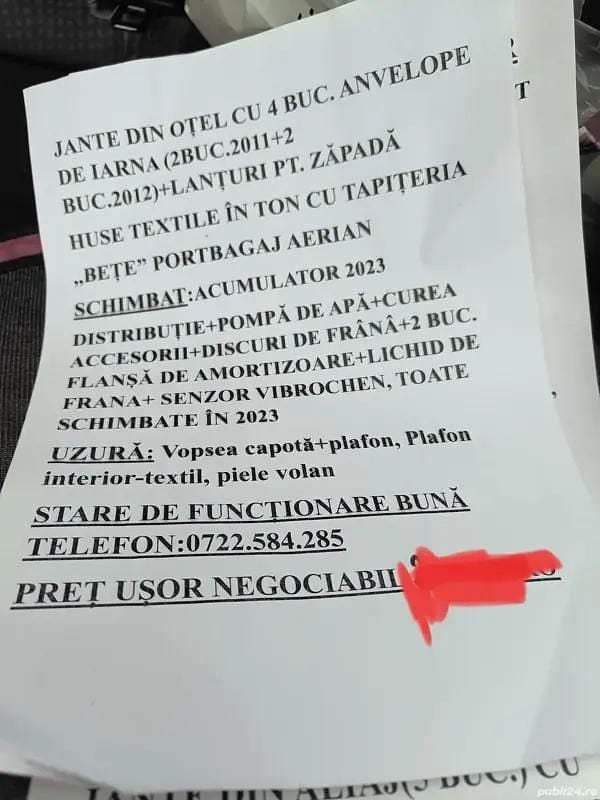 JANTE DIN OȚEL CU 4 BUC. ANVELOPE
DE IARNA (2BUC.2011+2
BUC.2012)+LANȚURI PT. ZĂPADĂ
HUSE TEXTILE ÎN TON CU TAPIȚERIA
„BEȚE” PORTBAGAJ AERIAN
SCHIMBAT:ACUMULATOR 2023
DISTRIBUȚIE+POMPĂ DE APĂ+CUREA
ACCESORII+DISCURI DE FRÂNÂ+2 BUC.
FLANȘĂ DE AMORTIZOARE+LICHID DE
FRANA+ SENZOR VIBROCHEN, TOATE
SCHIMBATE ÎN 2023
UZURĂ: Vopsea capotă+plafon, Plafon
interior-textil, piele volan
STARE DE FUNCȚIONARE BUNĂ
TELEFON:0722.584.285
PREȚ UȘOR NEGOCIABIL
T
JANTE DIN ALIAJ(5 BUC.) CU
publi24.ro